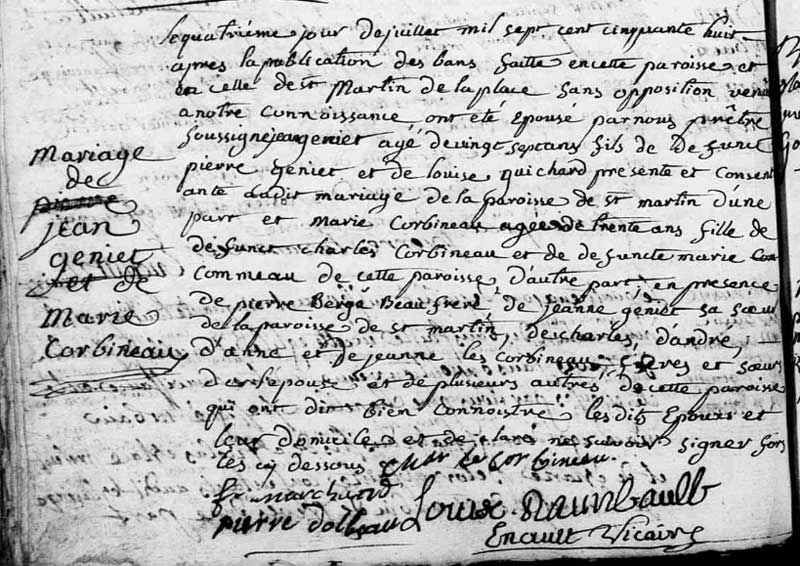 Mariage
de
pierre
jean
geniet
et de
Marie
Corbineau
Le quatriéme jour de juillet mil sept cent cinquante huit
apres la publication des bans faitte en cette paroisse et
en celle de st Martin de la place sans opposition venüe
a notre connoissance ont été épousé par nous prêtre
soussigné jean geniet agé de vingt sept ans fils de defunct
pierre geniet et de louise guichard presente et consent
ante audit mariage de la paroisse de st martin d'une
part et marie Corbineau agée de trente ans fille de
defunct charles Corbineau et de defuncte marie Con
Commeau de cette paroisse, d'autre part, en presence
de pierre Bergé Beaufrere, de jeanne geniet sa sœur
de la paroisse de st martin, de charles, d'andré,
d'anne et de jeanne les Corbineau, freres et sœurs
et de plusieurs autres, de cette paroisse
qui ont dit bien connoistre les dits Epoux et
leur domicile et declaré ne savoir signer fors
les cy dessous Charle Corbineau.
fr marchand
pierre dolbeau louise Raimbault
Enault Vicaire